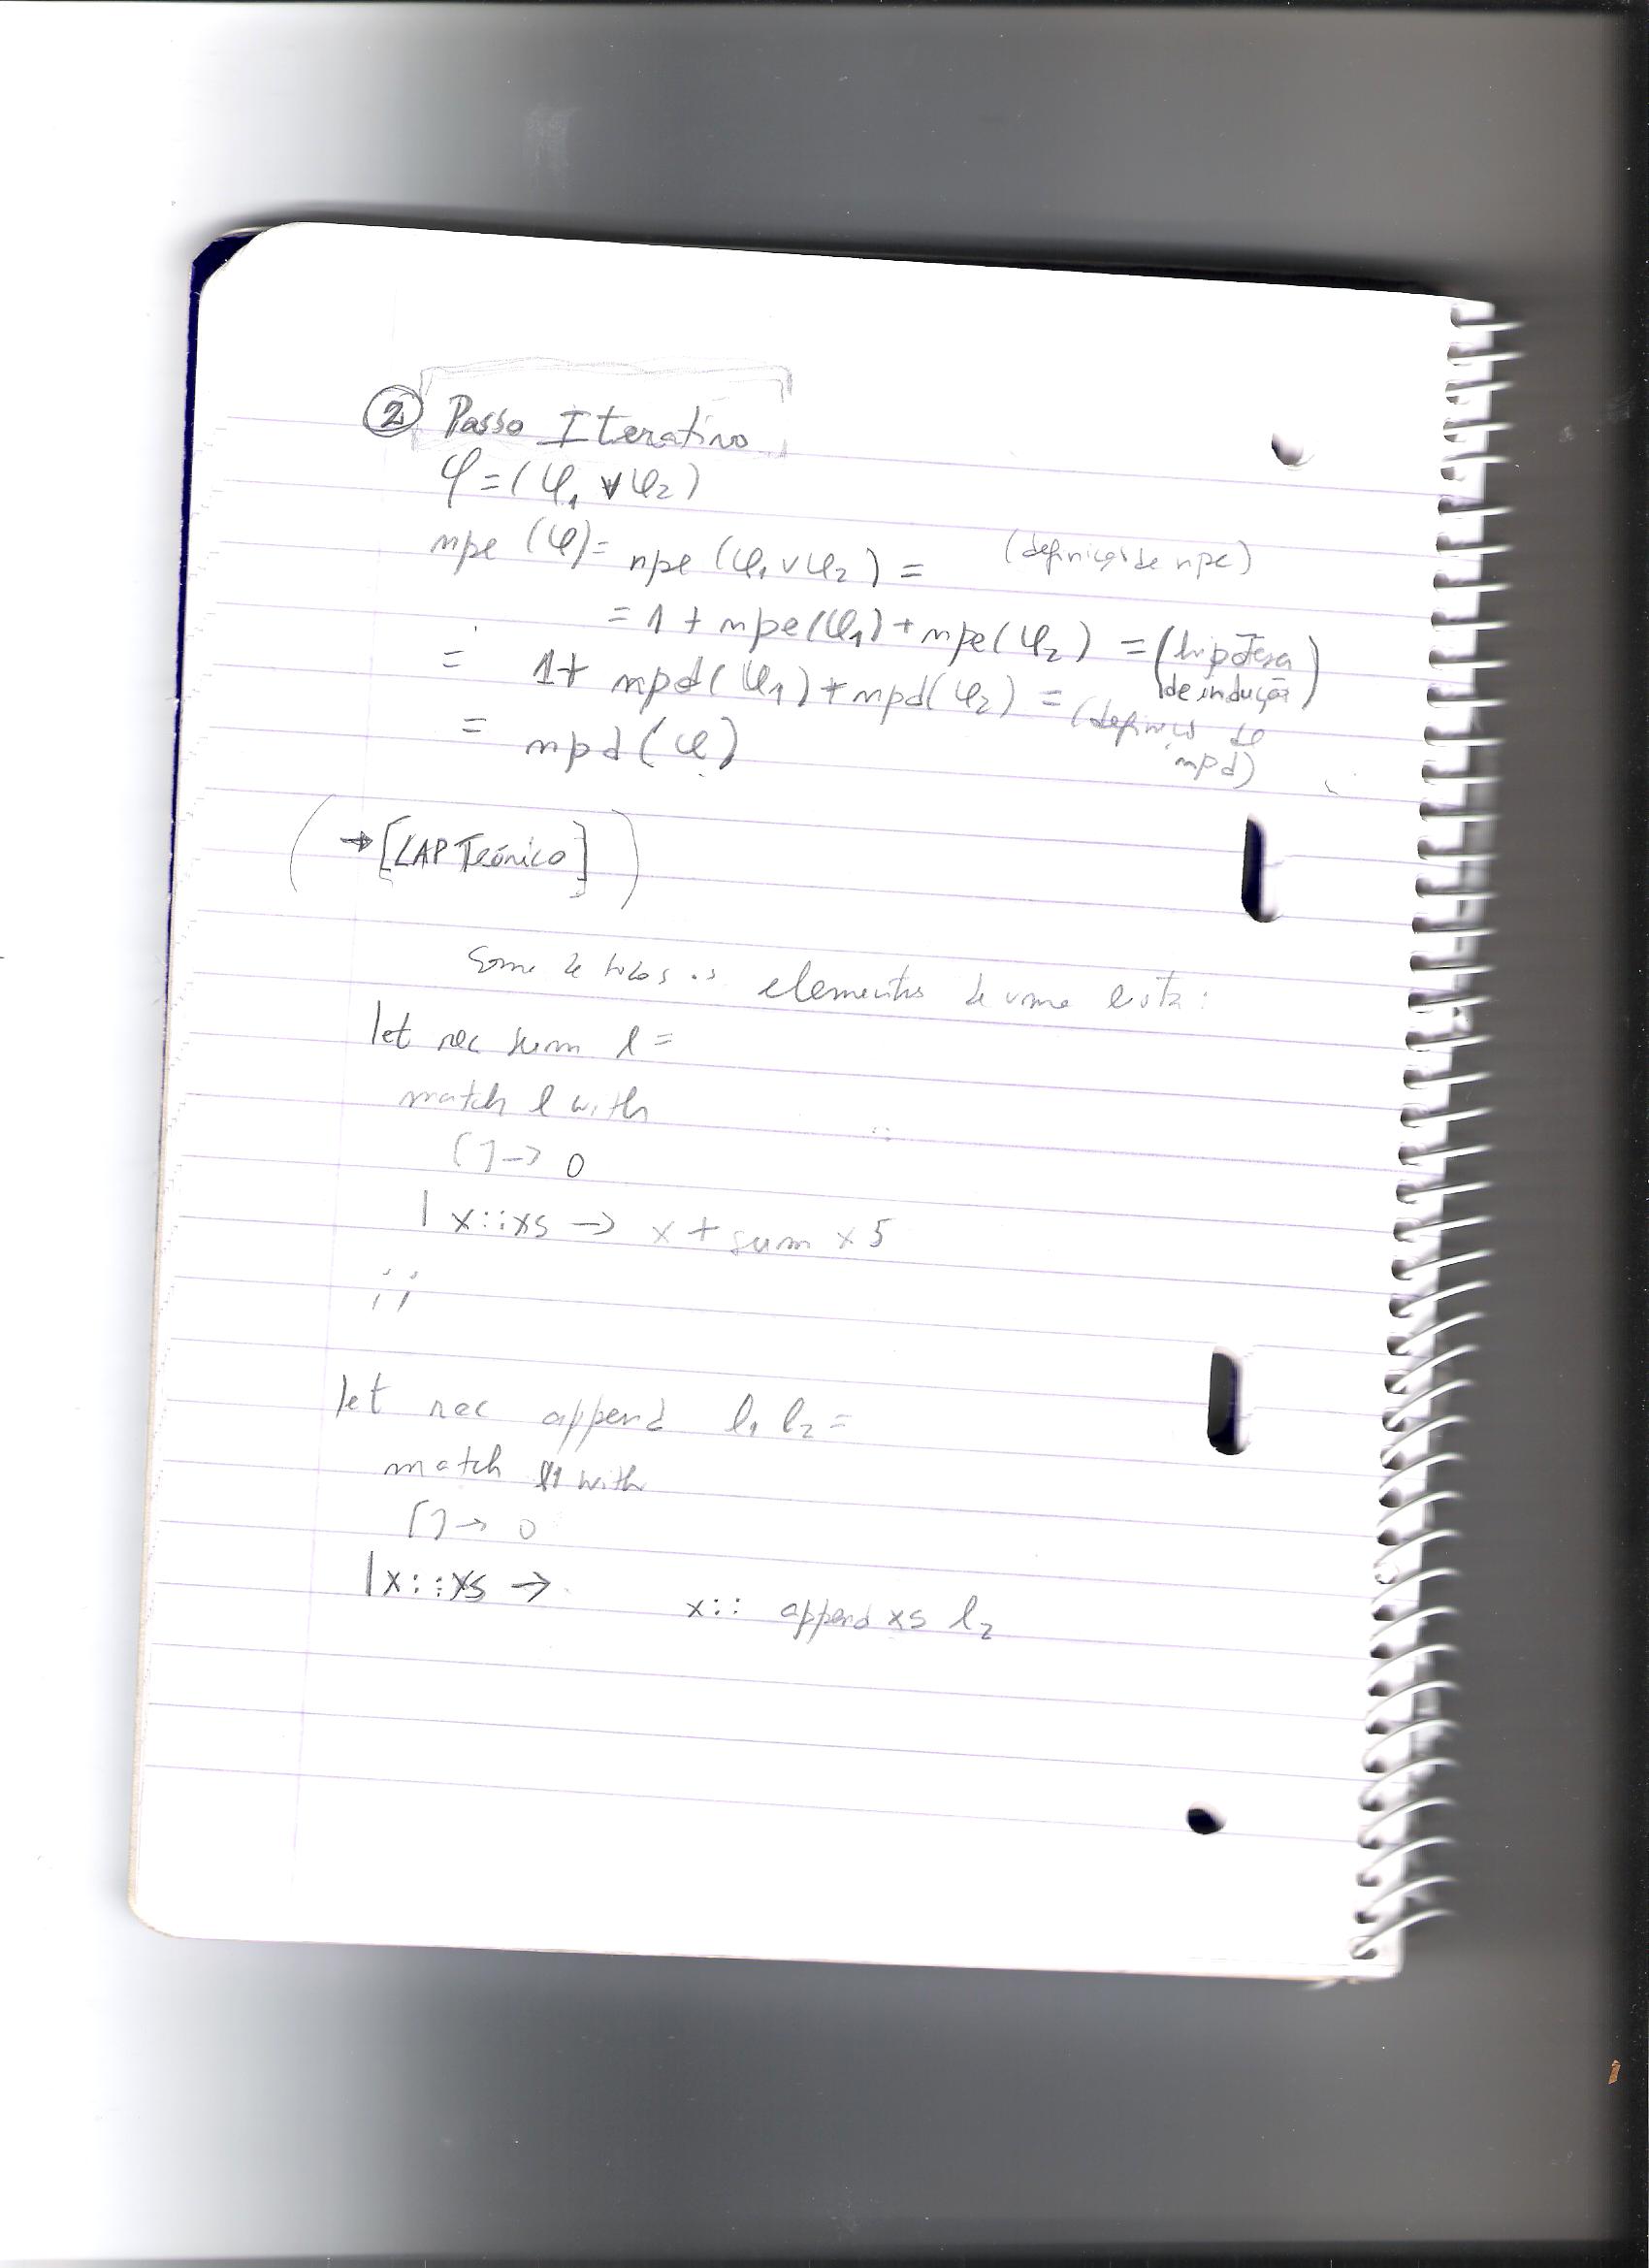 ② Passo Iterativo
φ = (φ₁ ∨ φ₂)
npe (φ) = npe (φ₁ ∨ φ₂) = (definição de npe)
= 1 + npe(φ₁) + npe(φ₂) = (hipótese de indução)
= 1 + npd(φ₁) + npd(φ₂) = (definição de npd)
= npd(φ)
(→ [LAP Teórico])
Soma de todos os elementos de uma lista:
let rec sum l =
match l with
[] -> 0
| x::xs -> x + sum xs
;;
let rec append l₁ l₂ =
match l1 with
[] -> 0
| x::xs -> x:: append xs l₂